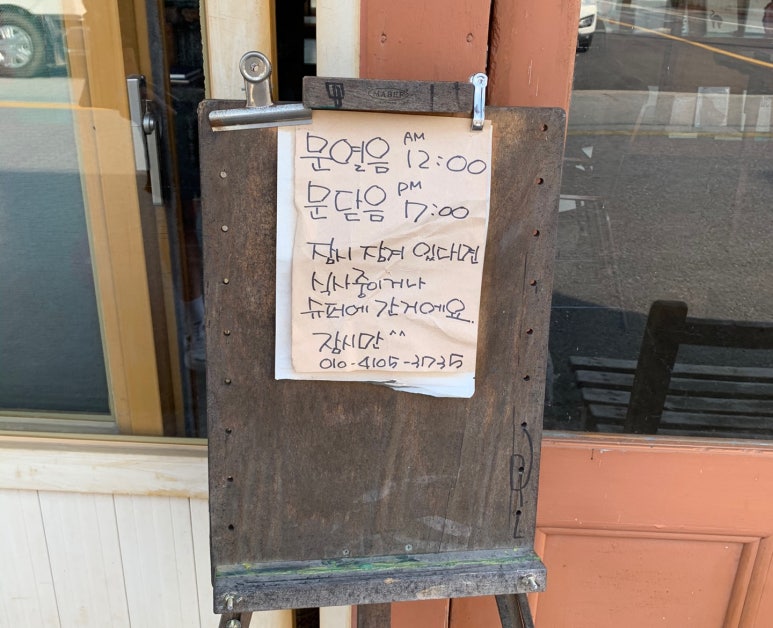 문열음 AM 12:00
문닫음 PM 7:00
잠시 잠겨 있다면
식사중이거나
슈퍼에 간거에요.
잠시만^^
010-4105-3735